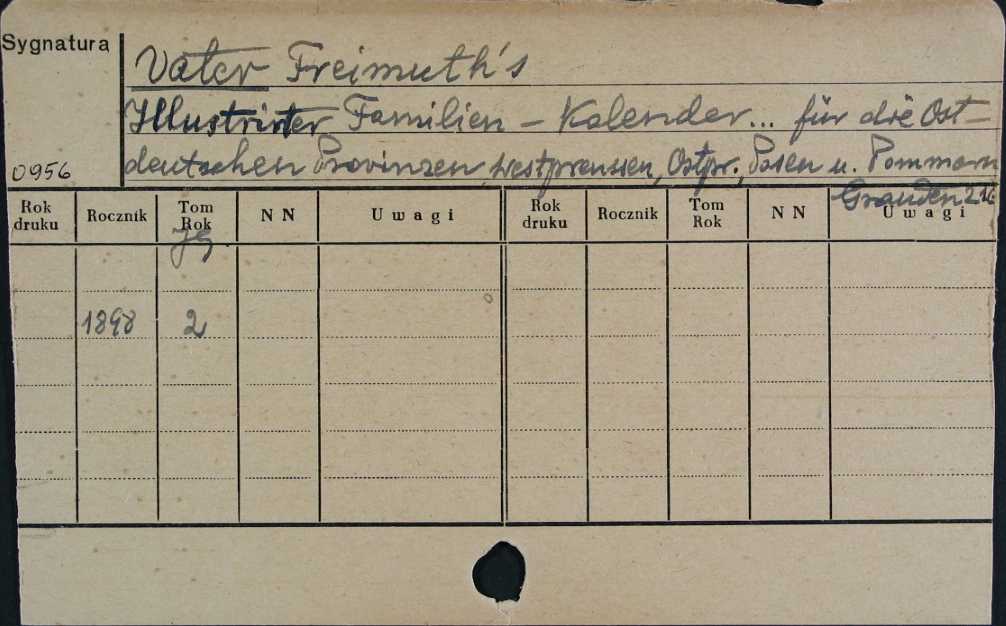 Sygnatura
Vater Freimuth's
Illustrirter Familien - Kalender... für die Ost-
deutschen Provinzen, Westpreussen, Ostpr., Posen u. Pommern
0956
Graudenz
Rok druku Rocznik Tom Rok N N Uwagi Rok druku Rocznik Tom Rok N N Uwagi
Jg
1898 2